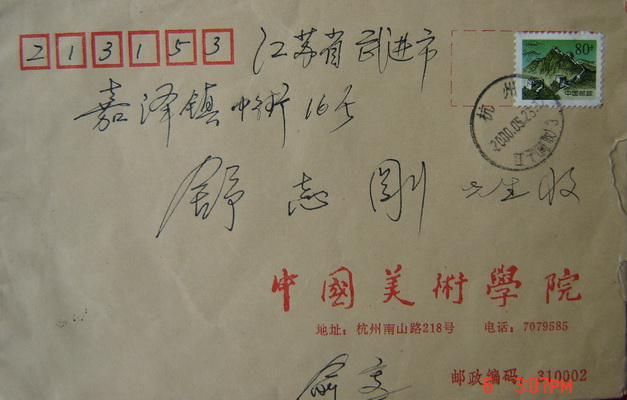 213153 江苏省武进市
80分
中国邮政
嘉泽镇中街16号
杭州
2000.05.25
舒志刚先生收
中國美術學院
地址：杭州南山路218号 电话：7079585
邮政编码 310002
俞
6 3:07PM